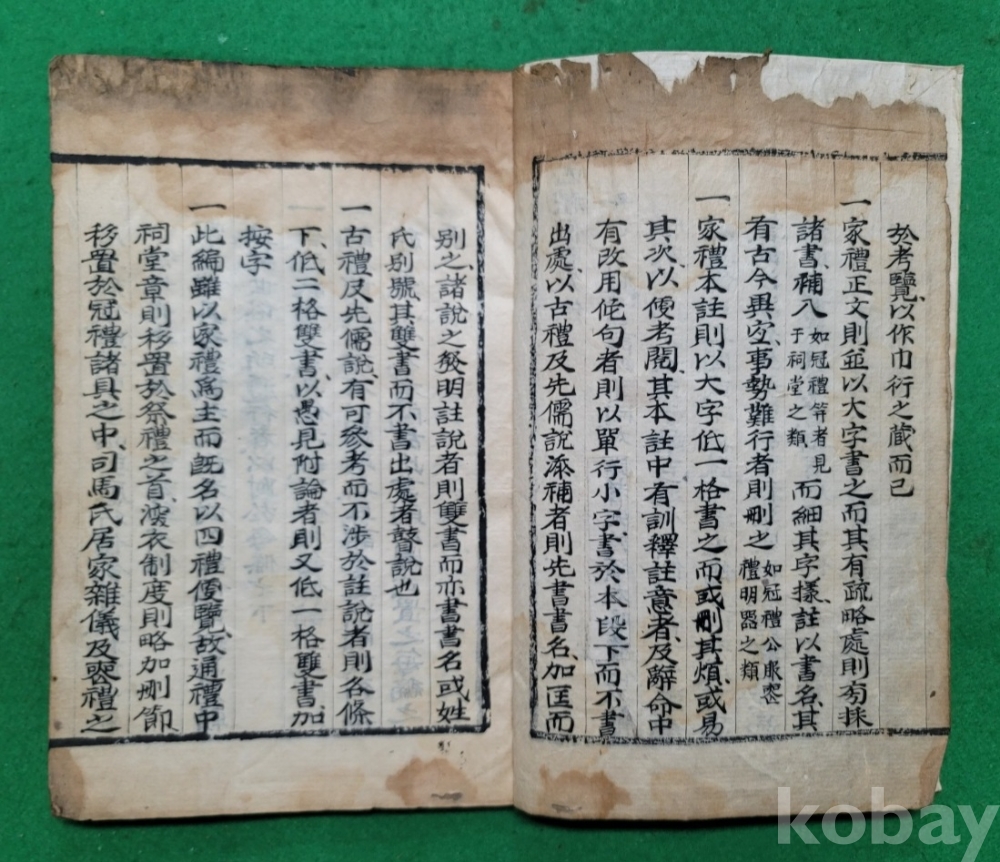 於考覽以作巾衍之藏而已
一家禮正文則並以大字書之而其有疏略處則旁採
諸書補入如冠禮笄者見于祠堂之類而細其字樣註以書名其
有古今異宜事勢難行者則刪之如冠禮公服喪禮明器之類
一家禮本註則以大字低一格書之而或刪其煩或易
其次以便考閱其本註中有訓釋註意者及辭命中
有改用他句者則以單行小字書於本段下而不書
出處以古禮及先儒說添補者則先書書名加匡而
別之諸說之發明註說者則雙書而亦書書名或姓
氏別號其雙書而不書出處者瞽說也
一古禮及先儒說有可參考而不涉於註說者則各條
下低二格雙書以愚見附論者則又低一格雙書加
按字
一此編雖以家禮爲主而旣名以四禮便覽故通禮中
祠堂章則移置於祭禮之首深衣制度則略加刪節
移置於冠禮諸具之中司馬氏居家雜儀及喪禮之
kobay